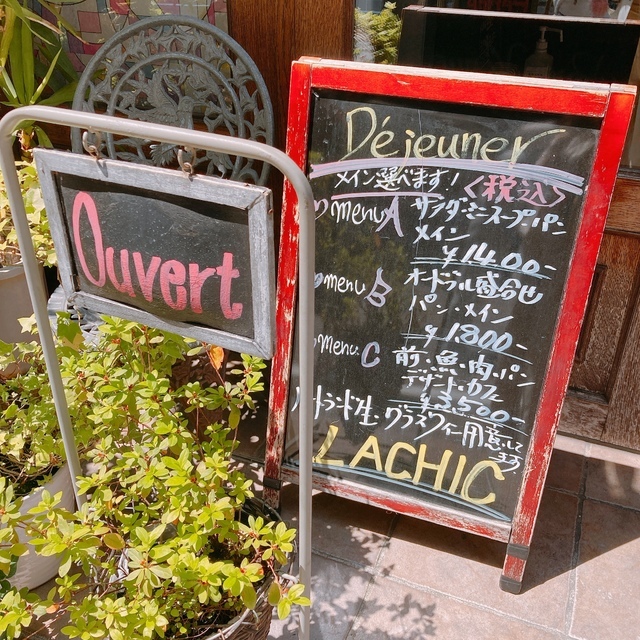 Ouvert
Déjeuner
メイン選べます! <税込>
menu A サラダ・ミニスープ・パン
メイン
¥1400-
menu B オードブル盛合せ
パン・メイン
¥1.800-
menu C 前・魚・肉・パン
デザート・カフェ
¥3.500-
ハートランド生・グラスワイン用意して
ます
LACHIC